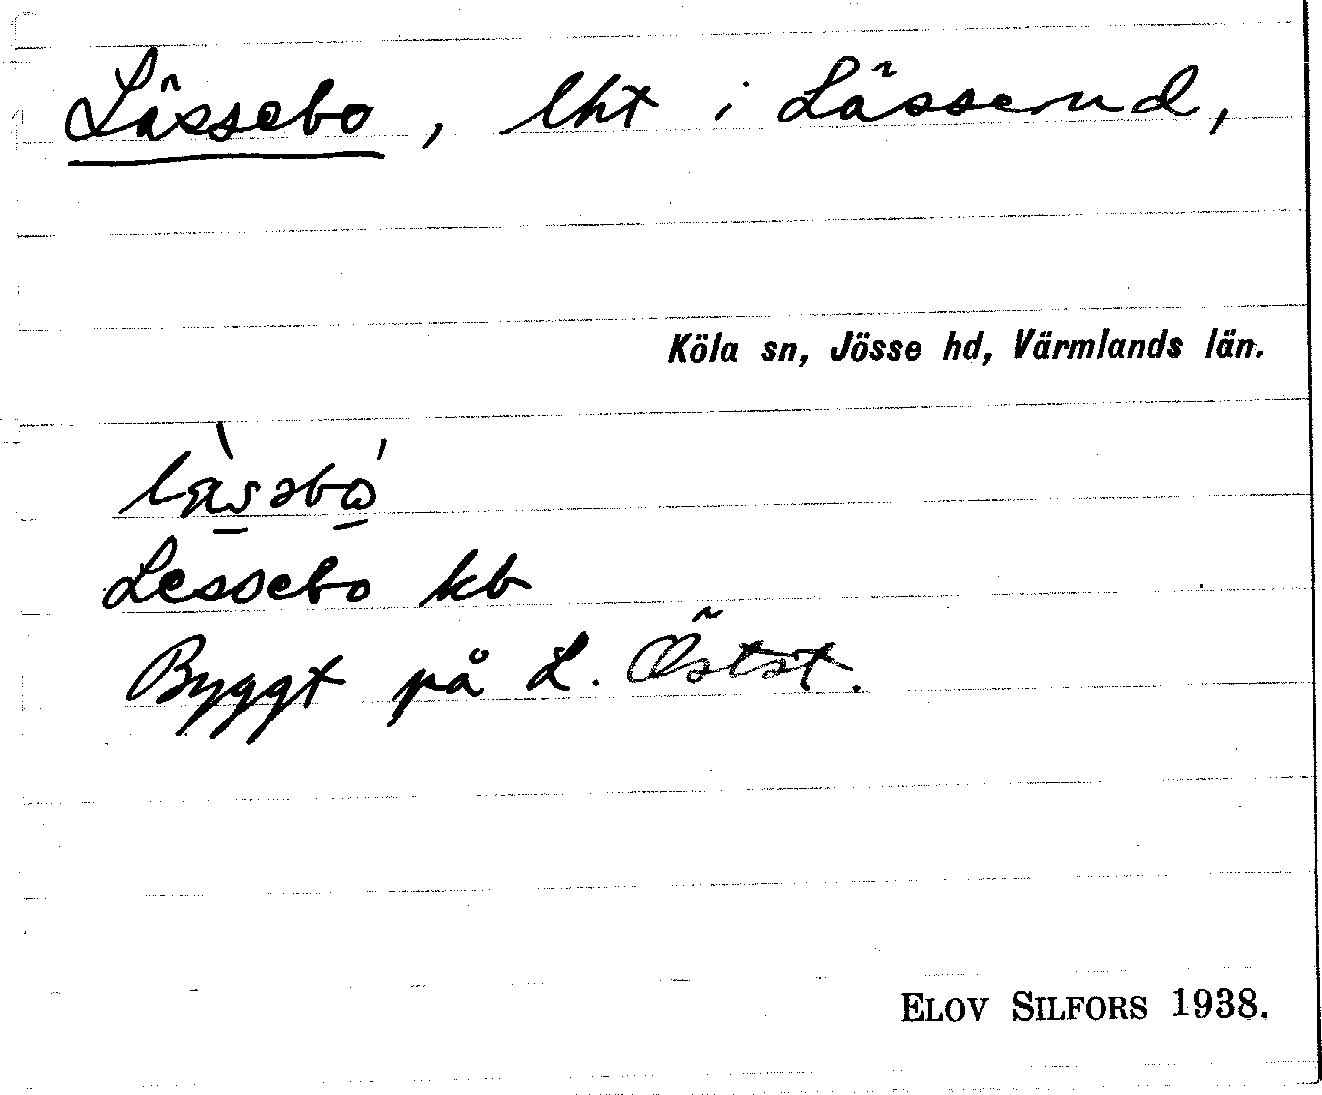 Lässebo, lht i Lässerud,
Köla sn, Jösse hd, Värmlands län.
Lessebo kb
Byggt på L. Östst.
ELOV SILFORS 1938.